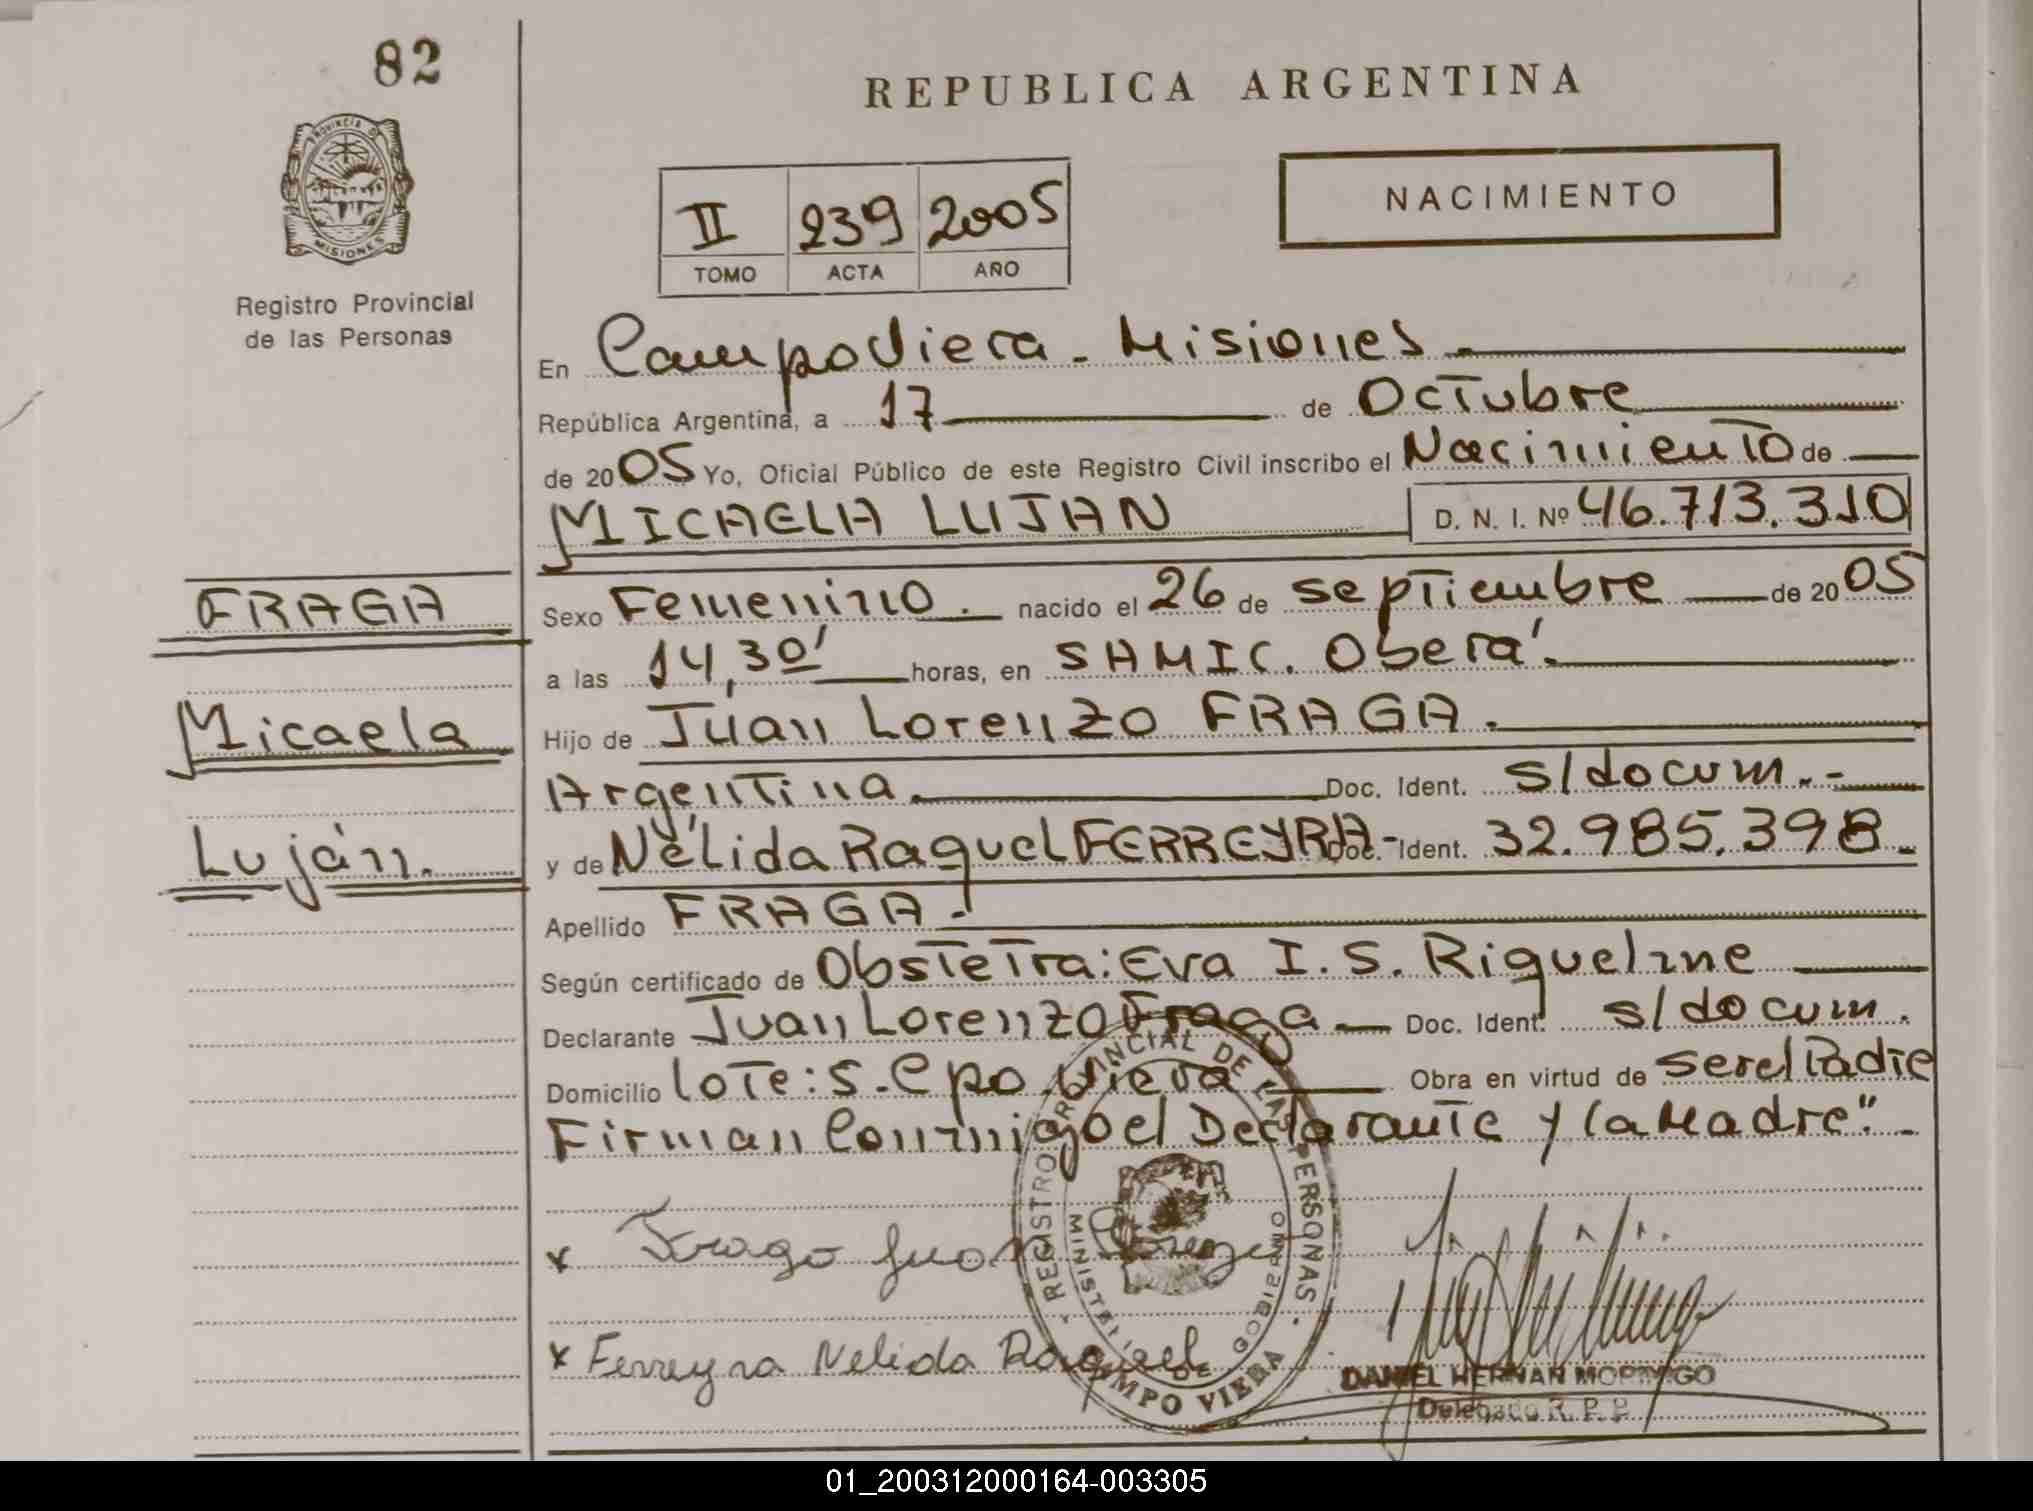 82
REPUBLICA ARGENTINA
PROVINCIA DE MISIONES
Registro Provincial
de las Personas
II 239 2005
TOMO ACTA AÑO
NACIMIENTO
En Campo Viera - Misiones.
República Argentina, a 17 de Octubre
de 2005 Yo, Oficial Público de este Registro Civil inscribo el Nacimiento de
MICAELA LUJAN D. N. I. Nº 46.713.310
FRAGA
Micaela
Luján.
Sexo Femenino. nacido el 26 de septiembre de 2005
a las 14,30' horas, en SAMIC. Oberá.
Hijo de Juan Lorenzo FRAGA.
Argentina. Doc. Ident. s/docum.-
y de Nélida Raquel FERREYRA- Doc. Ident. 32.985.398.
Apellido FRAGA.
Según certificado de Obstetra: Eva I. S. Riquelme
Declarante Juan Lorenzo Fraga Doc. Ident. s/docum.
Domicilio Lote: S. Cpo. Viera Obra en virtud de ser el Padre
Firman Conmigo el Declarante y la Madre".-
REGISTRO PROVINCIAL DE LAS PERSONAS
MINISTERIO DE GOBIERNO
CAMPO VIERA
x Fraga Juan Lorenzo
x Ferreyra Nelida Raquel
DANIEL HERNAN MORINIGO
Delegado R. P. P.
01_200312000164-003305